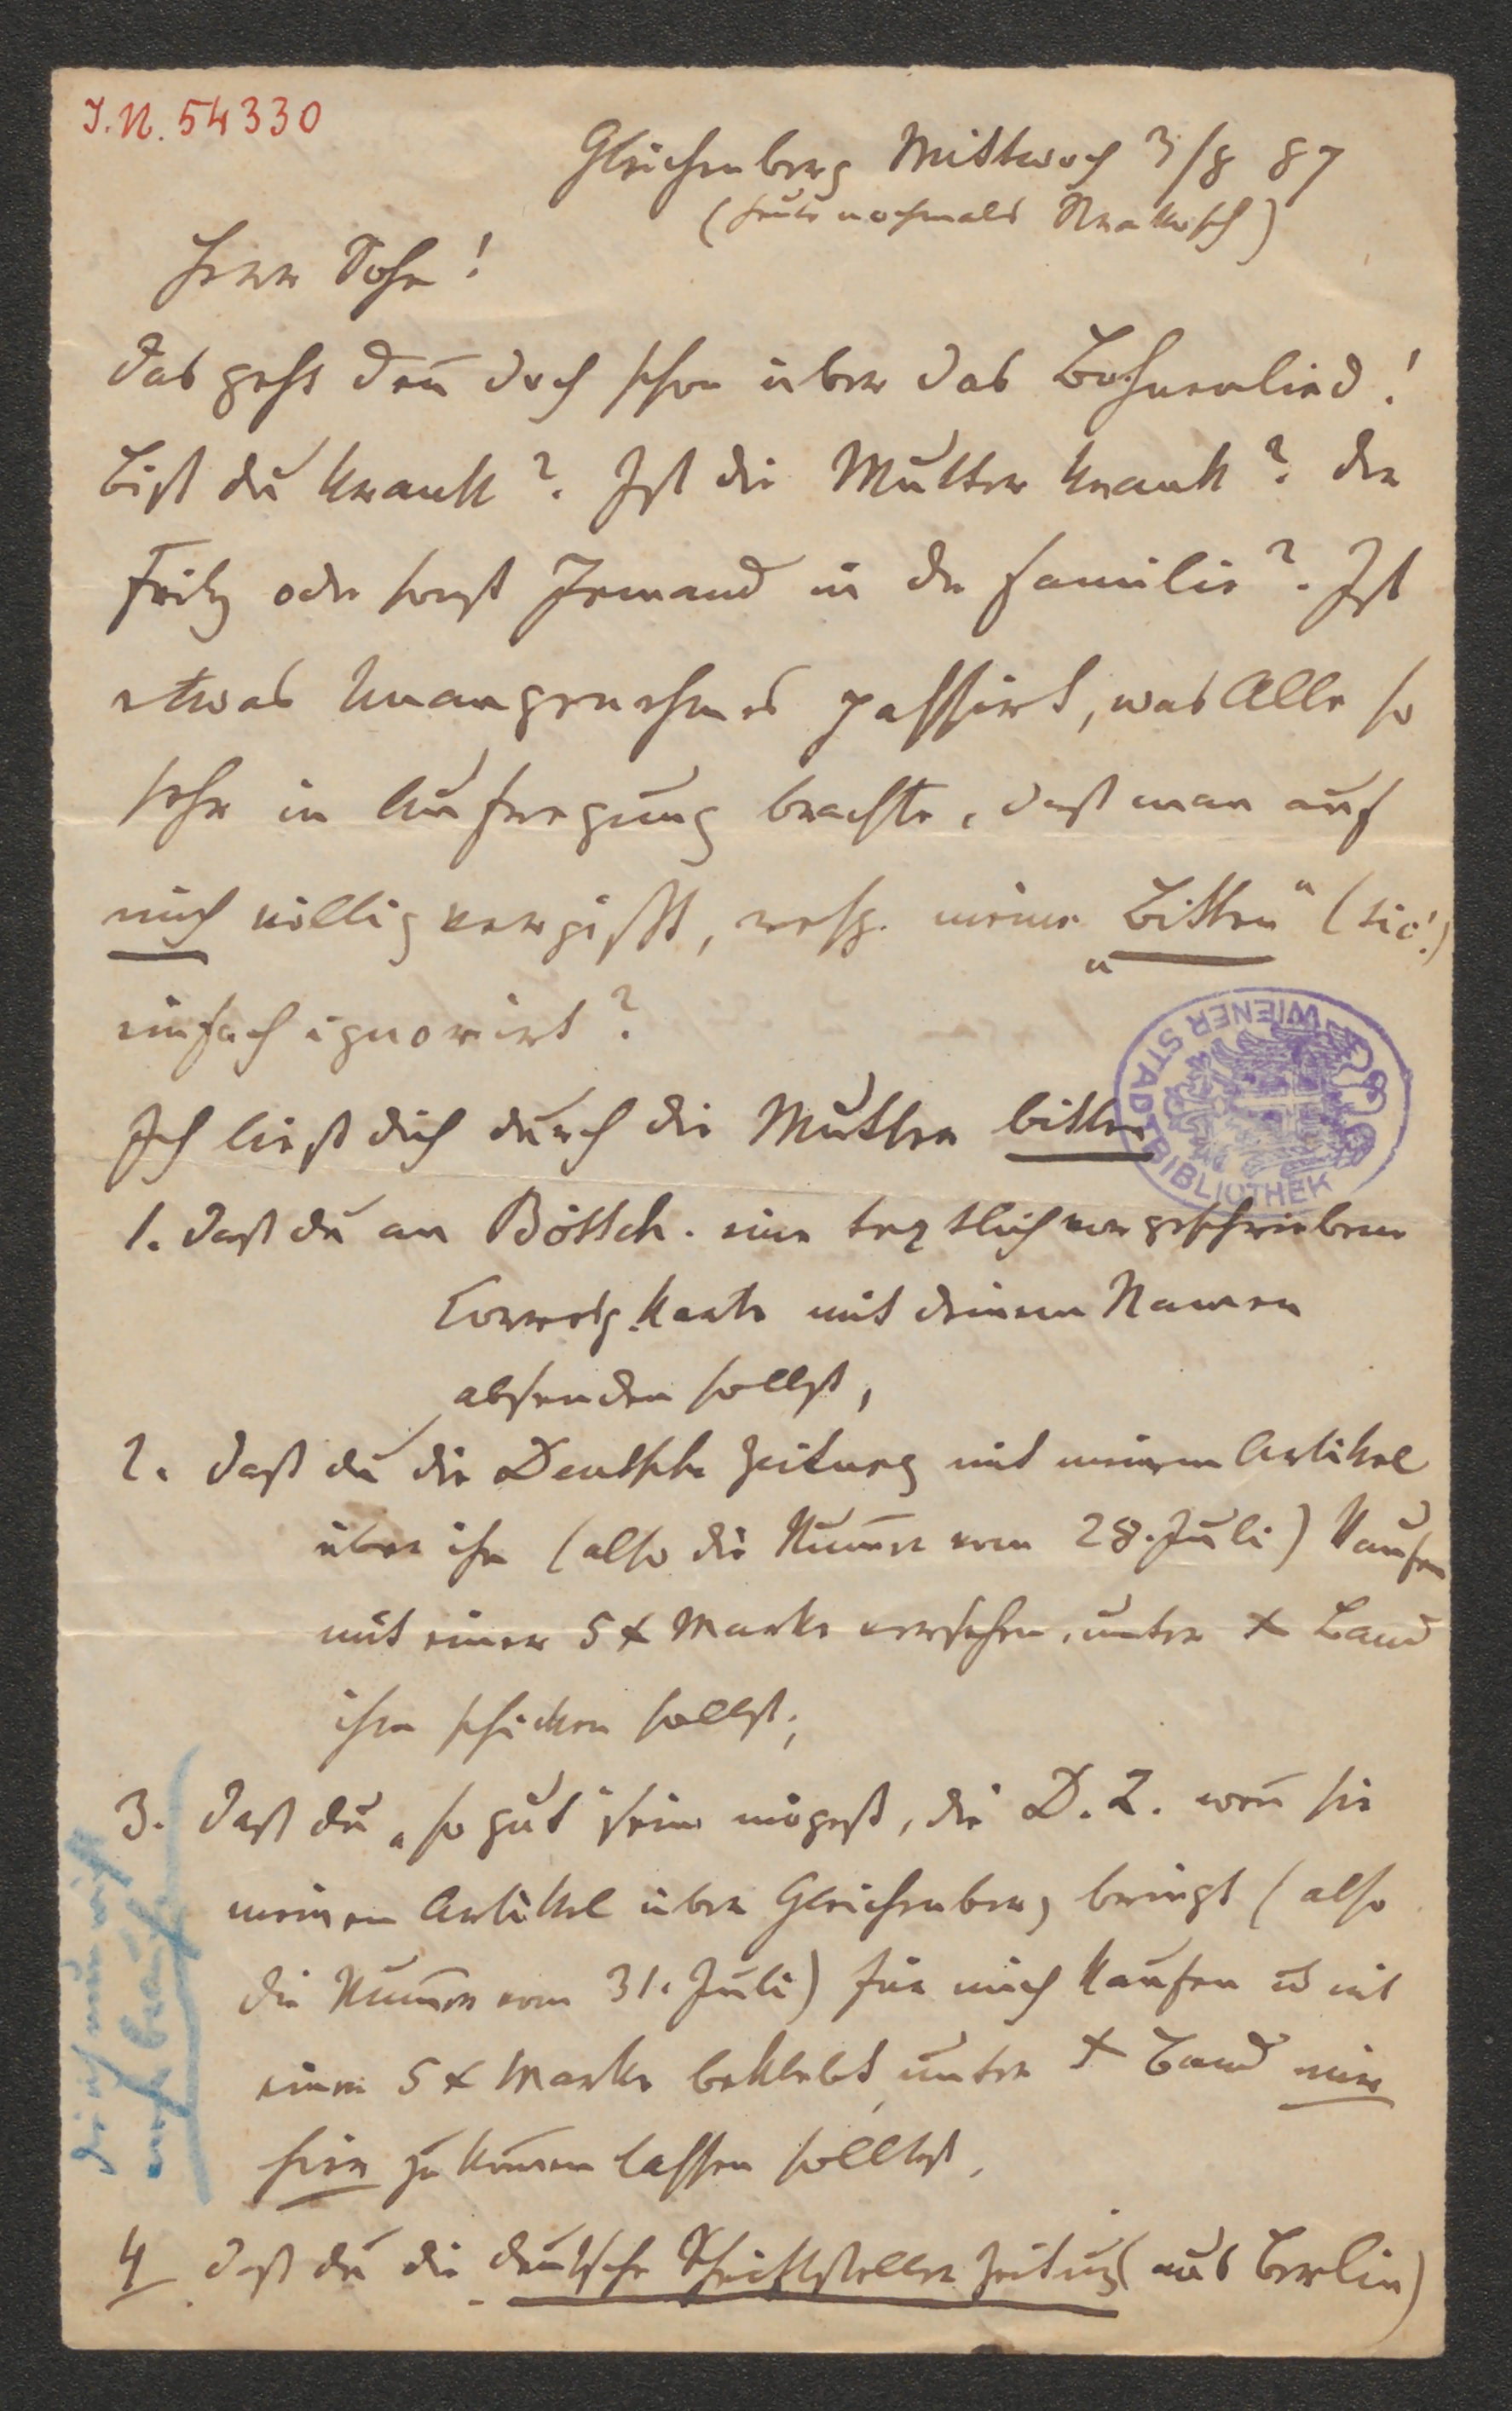 I.N. 54330
Gleichenberg Mittwoch 3/8 87
(heute nochmals Strakosch)
Herr Sohn!
Das geht deñ doch schon über das Bohnenlied!
Bist du krank? Ist die Mutter krank? der
Fritz oder sonst Jemand in der Familie? Ist
etwas Unangenehmes passirt, was Alle so
sehr in Aufregung brachte, daß man auf
mich völlig vergißt, resp. meine „Bitten“ (sic!)
einfach ignorirt?
Ich ließ dich durch die Mutter bitten
1. daß du an Böttch. eine textlich vorgeschriebene
Corresp. Karte mit deinem Namen
absenden sollst,
2. daß du die Deutsche Zeitung mit meinem Artikel
über ihn (also die Num̃er vom 28. Juli) kaufen
mit einer 5 x Marke versehen, unter X Band
ihm schicken sollst;
3. daß du „so gut“ sein mögest, die D. Z. weñ sie
meinen Artikel über Gleichenberg bringt (also
die Num̃er vom 31. Juli) für mich kaufen u mit
einer 5 x Marke beklebt, unter X Band mir
hier zukom̃en lassen solltest,
die ich nun nicht
mehr brauche
4 daß du die deutsche Schriftsteller Zeitung (aus Berlin)
WIENER STADTBIBLIOTHEK